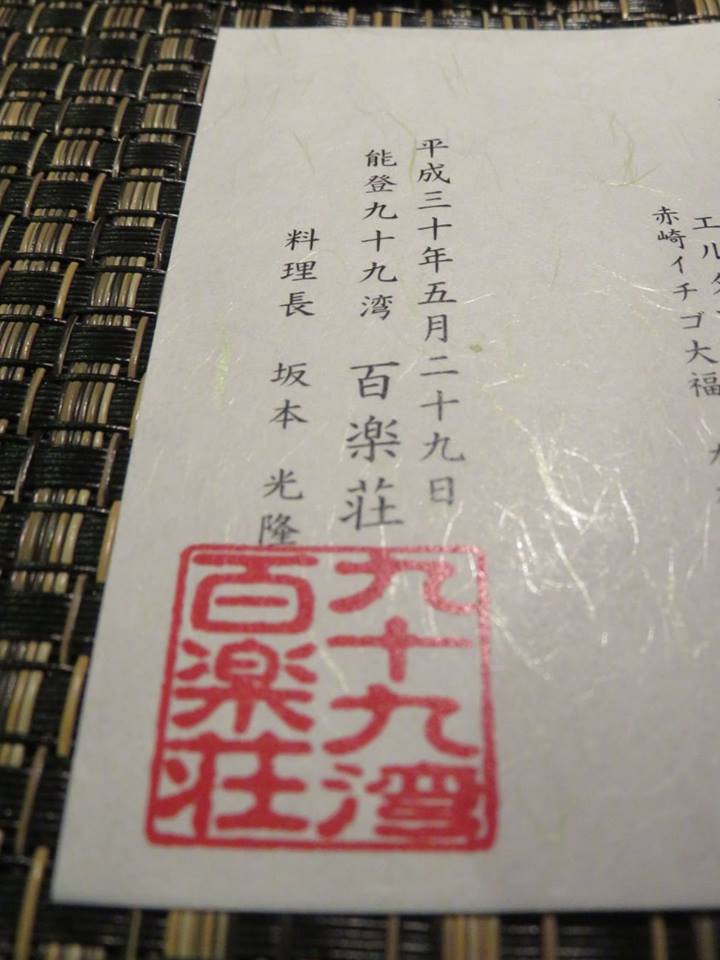 エルダ
赤崎イチゴ大福
平成三十年五月二十九日
能登九十九湾 百楽荘
料理長 坂本 光隆
九十九湾
百楽荘